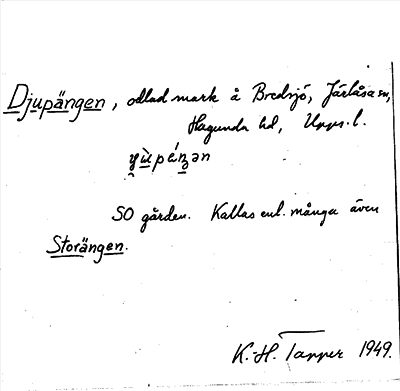 Djupängen, odlad mark å Bredsjö, Järlåsa sn,
Hagunda hd, Upps. l.
SO gården. Kallas enl. många även
Storängen.
K.-H. Tapper 1949.